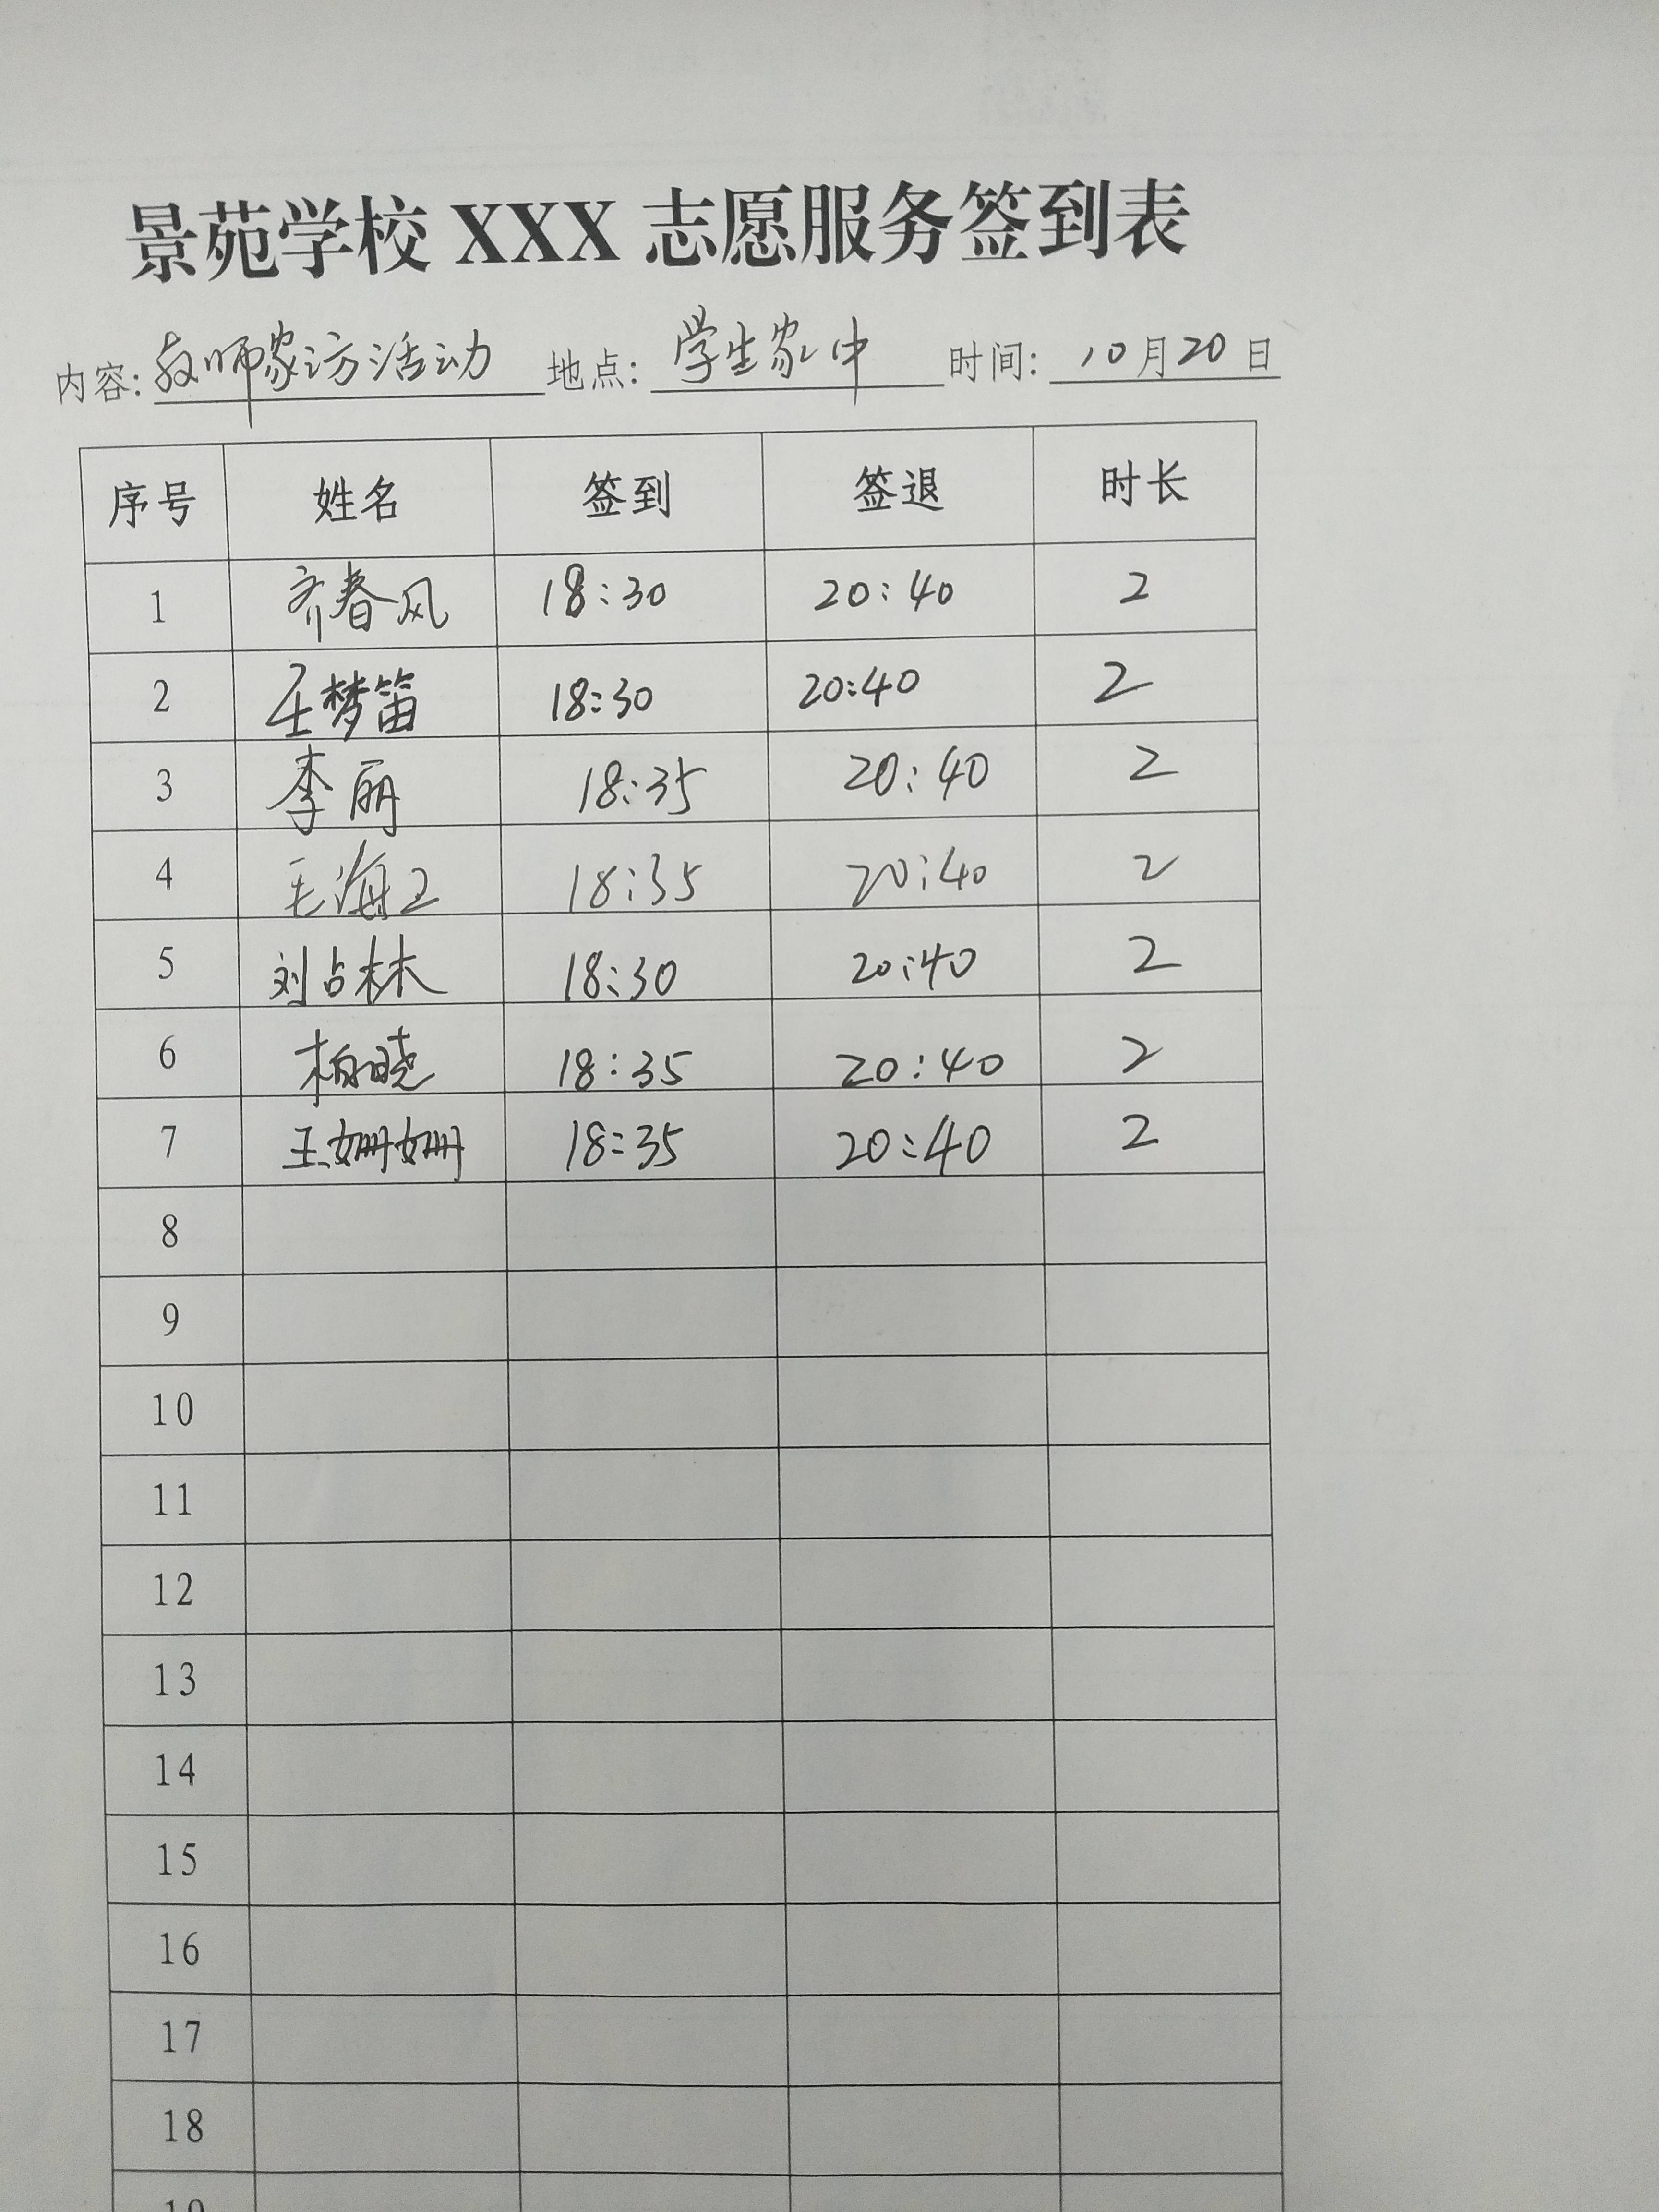 景苑学校 XXX 志愿服务签到表
内容: 教师家访活动 地点: 学生家中 时间: 10月20日
序号 姓名 签到 签退 时长
1 齐春风 18:30 20:40 2
2 王梦笛 18:30 20:40 2
3 李丽 18:35 20:40 2
4 毛海卫 18:35 20:40 2
5 刘占林 18:30 20:40 2
6 柏晓 18:35 20:40 2
7 王姗姗 18:35 20:40 2
8
9
10
11
12
13
14
15
16
17
18